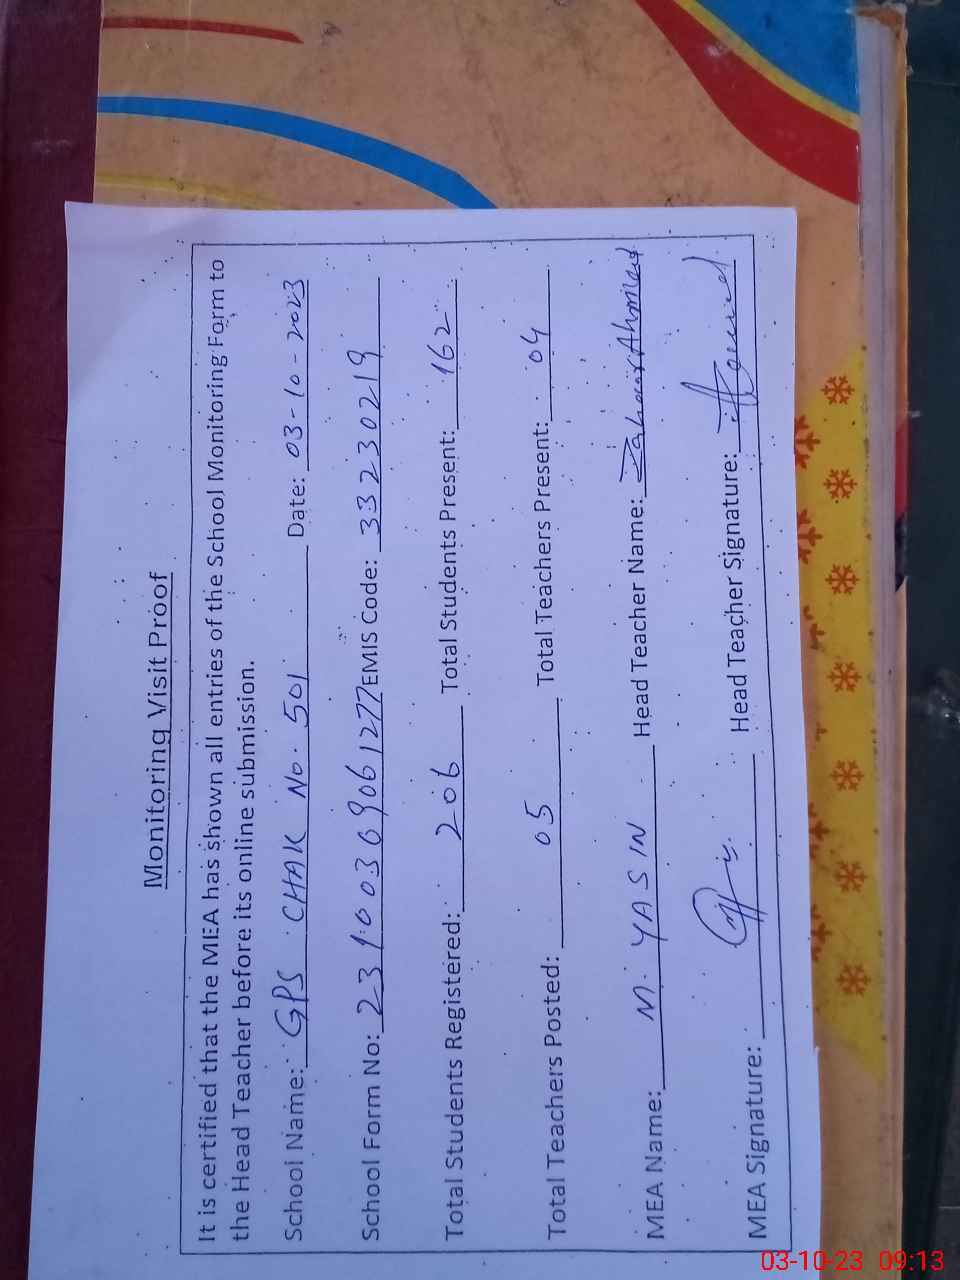 Monitoring Visit Proof
It is certified that the MEA has shown all entries of the School Monitoring Form to
the Head Teacher before its online submission.
School Name: GPS CHAK No. 501 Date: 03-10-2023
School Form No: 23100369061277 EMIS Code: 33230219
Total Students Registered: 206 Total Students Present: 162
Total Teachers Posted: 05 Total Teachers Present: 04
MEA Name: M. YASIN Head Teacher Name: Zahoor Ahmad
MEA Signature: Head Teacher Signature:
03-10-23 09:13